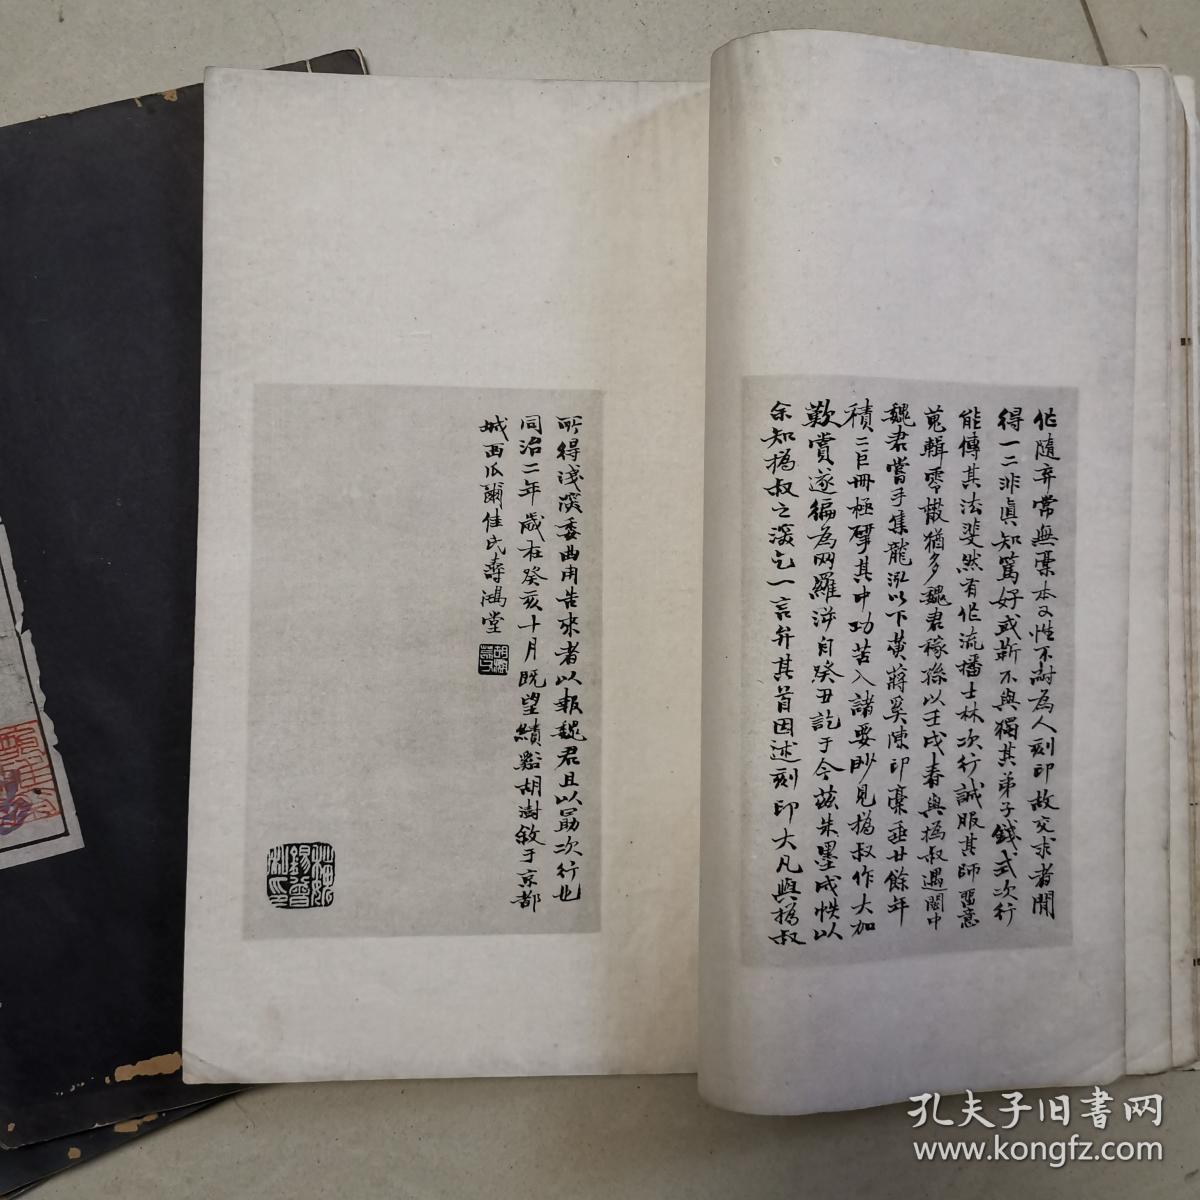 作隨弃常無稾本又性不耐為人刻印故交求者閒
得一二非眞知篤好或靳不與獨其弟子錢式次行
能傳其法斐然有作流播士林次行誠服其師畱意
蒐輯零散猶多魏君稼孫以壬戌春與撝叔遇閩中
魏君嘗手集龍泓以下黃蔣奚陳印稾垂廿餘年
積三巨冊極擘其中功苦入諸要眇見撝叔作大加
歎賞遂徧為网羅涉自癸丑訖于今茲朱墨成帙以
余知撝叔之深乞一言弁其首因述刻印大凡與撝叔
所得淺深委曲用告來者以報魏君且以勗次行也
同治二年歲在癸亥十月既望績谿胡澍敘于京都
城西瓜爾佳氏壽鴻堂
孔夫子旧書网
www.kongfz.com